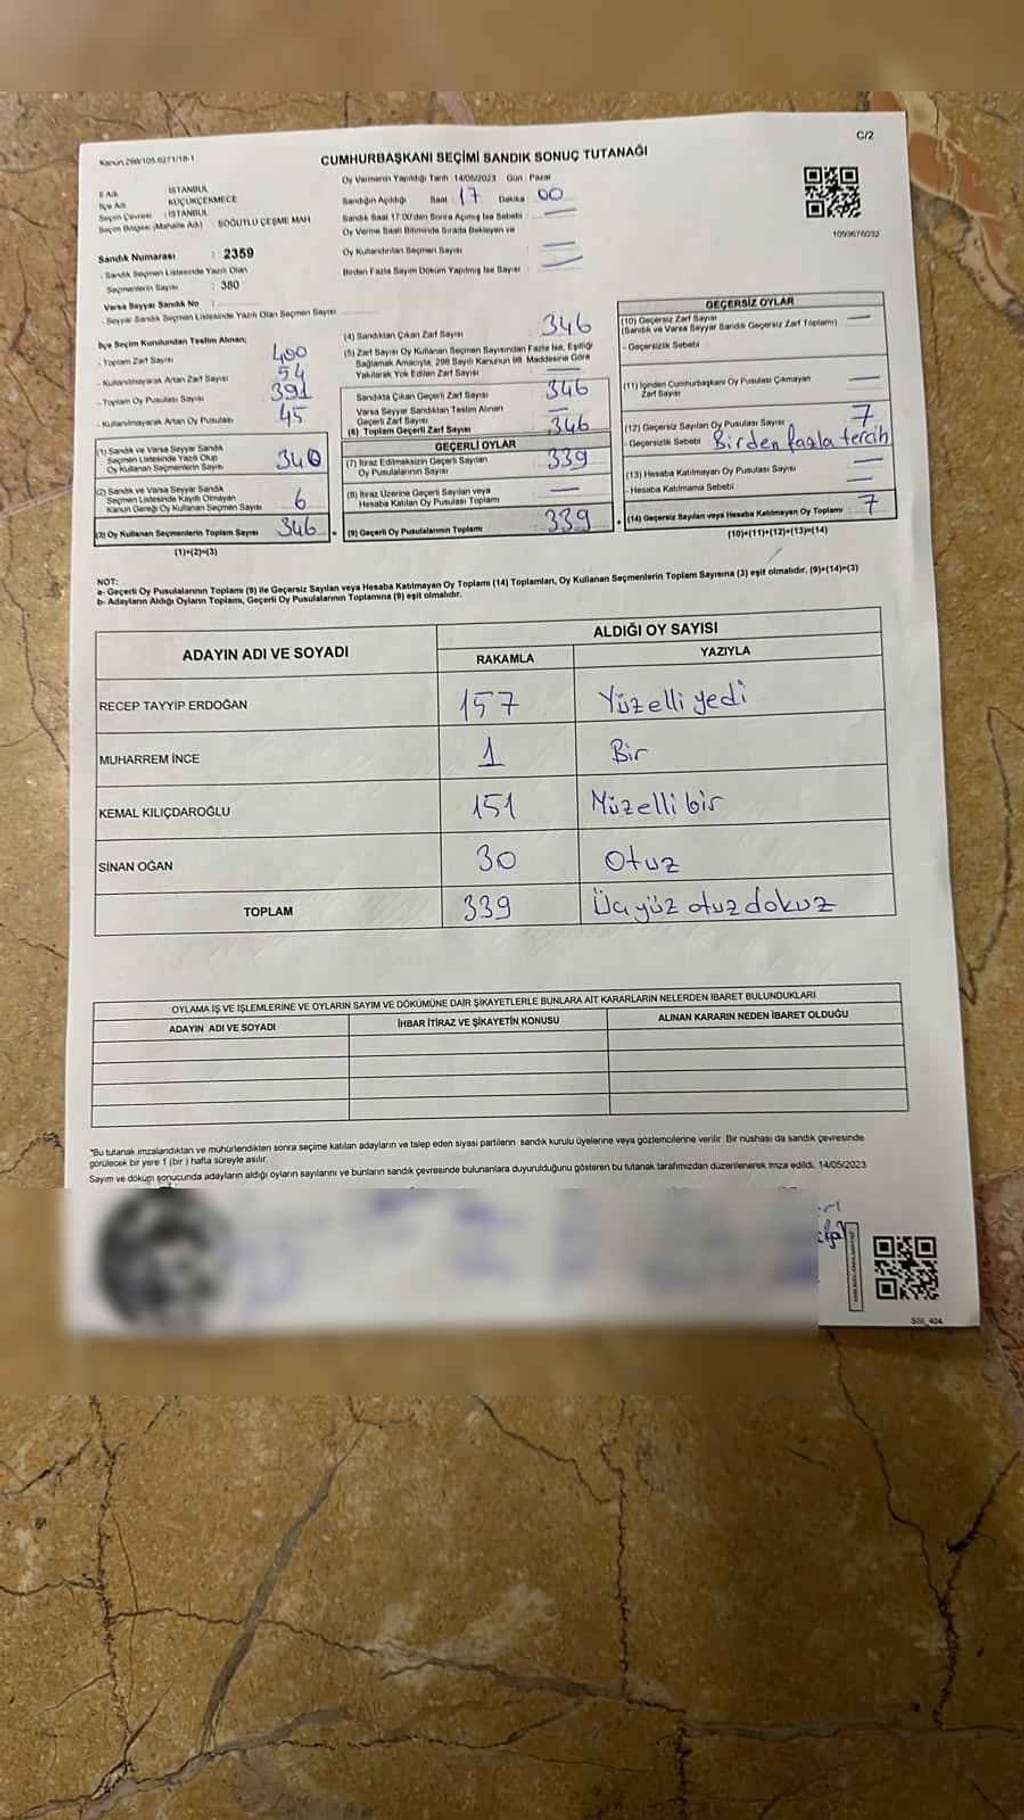 C/2
Kanun 298/105.6271/18-1
CUMHURBAŞKANI SEÇİMİ SANDIK SONUÇ TUTANAĞI
İl Adı : İSTANBUL
İlçe Adı : KÜÇÜKÇEKMECE
Seçim Çevresi : İSTANBUL
Seçim Bölgesi (Mahalle Adı) : SÖĞÜTLÜ ÇEŞME MAH
Sandık Numarası : 2359
- Sandık Seçmen Listesinde Yazılı Olan
Seçmenlerin Sayısı : 380
Varsa Seyyar Sandık No :
- Seyyar Sandık Seçmen Listesinde Yazılı Olan Seçmen Sayısı
Oy Vermenin Yapıldığı Tarih :14/05/2023 Gün : Pazar
Sandığın Açıldığı Saat 17 Dakika 00
Sandık Saat 17:00'den Sonra Açılmış İse Sebebi
Oy Verme Saati Bitiminde Sırada Bekleyen ve
Oy Kullandırılan Seçmen Sayısı
Birden Fazla Sayım Döküm Yapılmış İse Sayısı
1093676032
İlçe Seçim Kurulundan Teslim Alınan;
- Toplam Zarf Sayısı 400
- Kullanılmayarak Artan Zarf Sayısı 54
- Toplam Oy Pusulası Sayısı 391
- Kullanılmayarak Artan Oy Pusulası 45
(1) Sandık ve Varsa Seyyar Sandık
Seçmen Listesinde Yazılı Olup
Oy Kullanan Seçmenlerin Sayısı 340
(2) Sandık ve Varsa Seyyar Sandık
Seçmen Listesinde Kayıtlı Olmayan
Kanun Gereği Oy Kullanan Seçmen Sayısı 6
(3) Oy Kullanan Seçmenlerin Toplam Sayısı 346
(1)+(2)=(3)
(4) Sandıktan Çıkan Zarf Sayısı 346
(5) Zarf Sayısı Oy Kullanan Seçmen Sayısından Fazla İse, Eşitliği
Sağlamak Amacıyla, 298 Sayılı Kanunun 98. Maddesine Göre
Yakılarak Yok Edilen Zarf Sayısı
Sandıkta Çıkan Geçerli Zarf Sayısı 346
Varsa Seyyar Sandıktan Teslim Alınan
Geçerli Zarf Sayısı
(6) Toplam Geçerli Zarf Sayısı 346
GEÇERLİ OYLAR
(7) İtiraz Edilmeksizin Geçerli Sayılan
Oy Pusulalarının Sayısı 339
(8) İtiraz Üzerine Geçerli Sayılan veya
Hesaba Katılan Oy Pusulası Toplamı
(9) Geçerli Oy Pusulalarının Toplamı 339
GEÇERSİZ OYLAR
(10) Geçersiz Zarf Sayısı
(Sandık ve Varsa Seyyar Sandık Geçersiz Zarf Toplamı)
- Geçersizlik Sebebi
(11) İçinden Cumhurbaşkanı Oy Pusulası Çıkmayan
Zarf Sayısı
(12) Geçersiz Sayılan Oy Pusulası Sayısı 7
- Geçersizlik Sebebi Birden fazla tercih
(13) Hesaba Katılmayan Oy Pusulası Sayısı
- Hesaba Katılmama Sebebi
(14) Geçersiz Sayılan veya Hesaba Katılmayan Oy Toplamı 7
(10)+(11)+(12)+(13)=(14)
NOT:
a- Geçerli Oy Pusulalarının Toplamı (9) ile Geçersiz Sayılan veya Hesaba Katılmayan Oy Toplamı (14) Toplamları, Oy Kullanan Seçmenlerin Toplam Sayısına (3) eşit olmalıdır. (9)+(14)=(3)
b- Adayların Aldığı Oyların Toplamı, Geçerli Oy Pusulalarının Toplamına (9) eşit olmalıdır.
ADAYIN ADI VE SOYADI
ALDIĞI OY SAYISI
RAKAMLA YAZIYLA
RECEP TAYYİP ERDOĞAN 157 Yüzelli yedi
MUHARREM İNCE 1 Bir
KEMAL KILIÇDAROĞLU 151 Yüzelli bir
SİNAN OĞAN 30 Otuz
TOPLAM 339 Üçyüz otuz dokuz
OYLAMA İŞ VE İŞLEMLERİNE VE OYLARIN SAYIM VE DÖKÜMÜNE DAİR ŞİKAYETLERLE BUNLARA AİT KARARLARIN NELERDEN İBARET BULUNDUKLARI
ADAYIN ADI VE SOYADI İHBAR İTİRAZ VE ŞİKAYETİN KONUSU ALINAN KARARIN NEDEN İBARET OLDUĞU
*Bu tutanak imzalandıktan ve mühürlendikten sonra seçime katılan adayların ve talep eden siyasi partilerin sandık kurulu üyelerine veya gözlemcilerine verilir. Bir nüshası da sandık çevresinde
görülecek bir yere 1 (bir) hafta süreyle asılır.
Sayım ve döküm sonucunda adayların aldığı oyların sayılarını ve bunların sandık çevresinde bulunanlara duyurulduğunu gösteren bu tutanak tarafımızdan düzenlenerek imza edildi. 14/05/2023